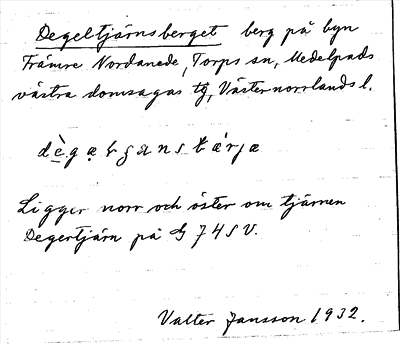 Degeltjärnsberget berg på byn
Främre Nordanede, Torps sn, Medelpads
västra domsagas tg, Västernorrlands l.
Ligger norr och öster om tjärnen
Degertjärn på G 74 S V.
Valter Jansson 1932.